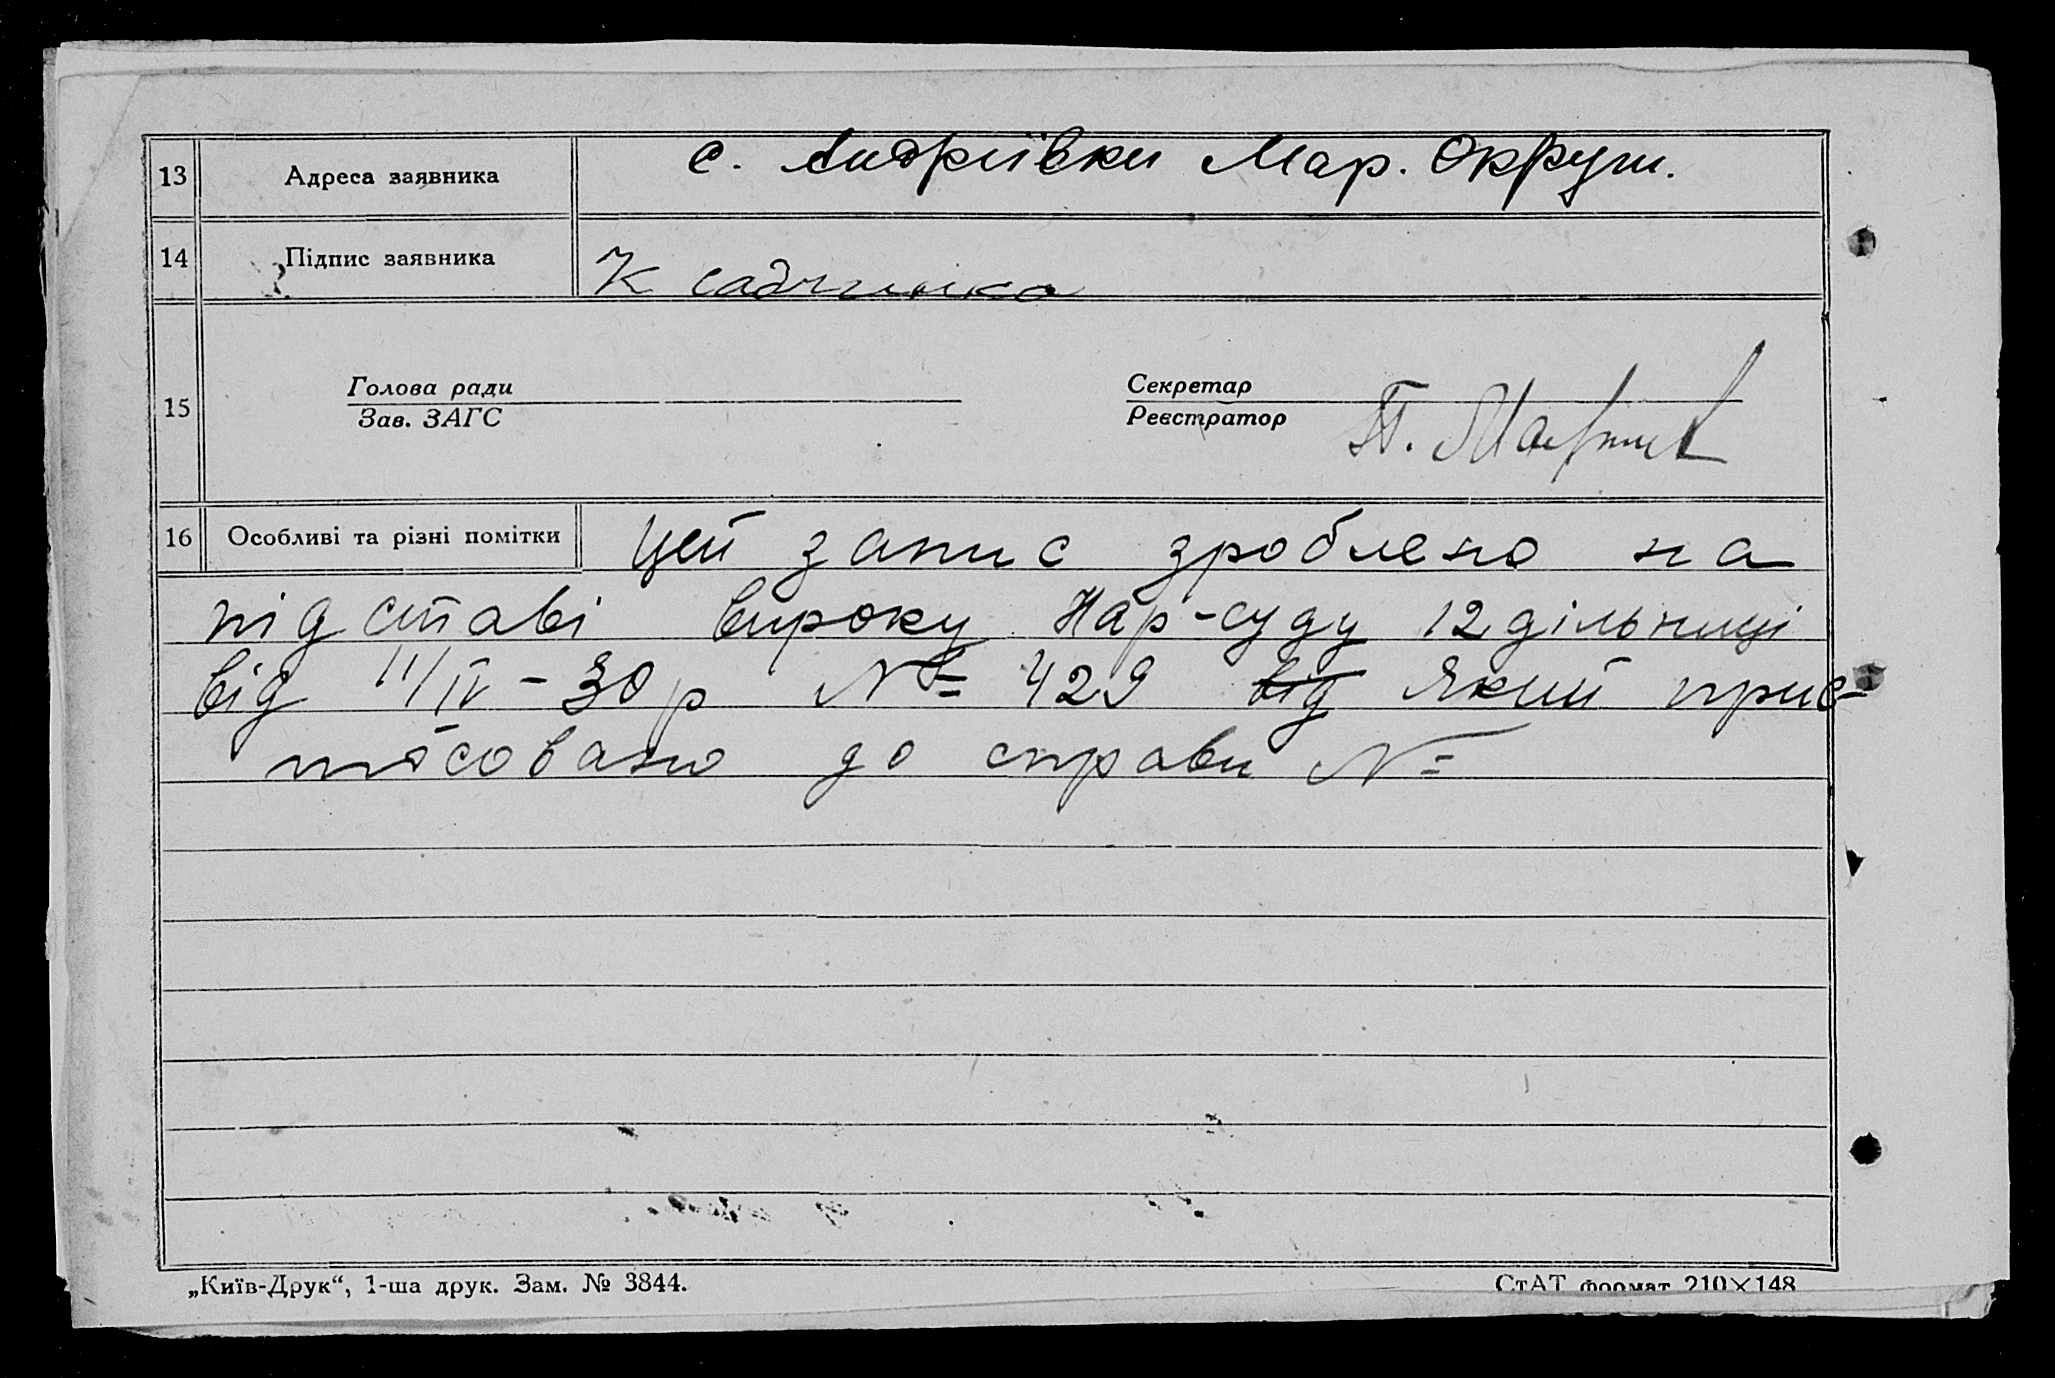 13 Адреса заявника с. Андріївки Мар. Округи.
14 Підпис заявника К садчинко
Голова ради Секретар
15
Зав. ЗАГС Реєстратор П.
16 Особливі та різні помітки Цей запис зроблено на
підставі вироку Нар-суду 12 дільниці
від 11/IV-30р № 429 від який прис-
тосовано до справи №
„Київ-Друк“, 1-ша друк. Зам. № 3844. СтАТ формат 210×148